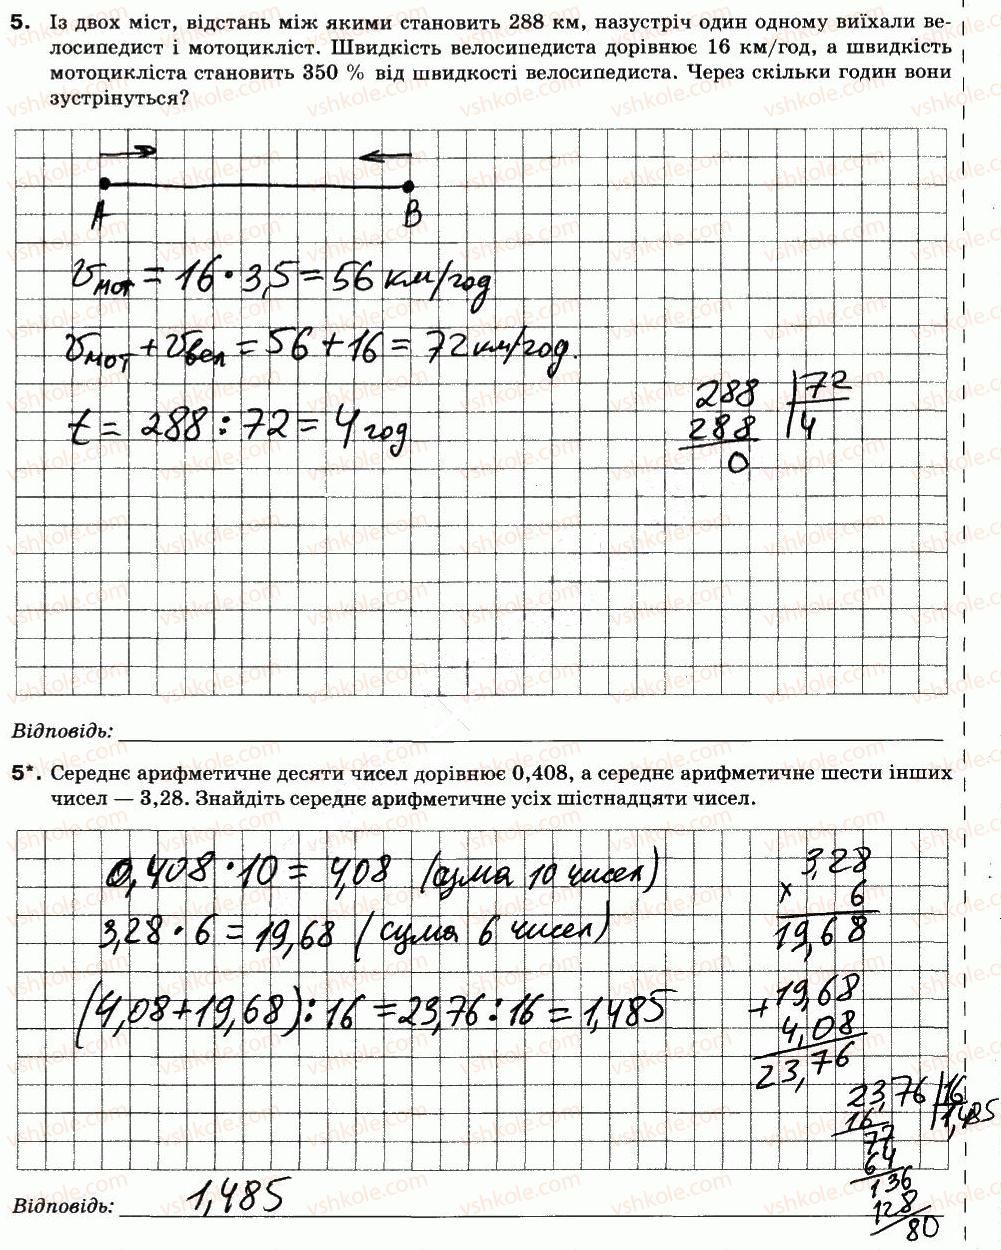 5. Із двох міст, відстань між якими становить 288 км, назустріч один одному виїхали ве-
лосипедист і мотоцикліст. Швидкість велосипедиста дорівнює 16 км/год, а швидкість
мотоцикліста становить 350 % від швидкості велосипедиста. Через скільки годин вони
зустрінуться?
А В
Vмот = 16 · 3,5 = 56 км/год
Vмот + Vвел = 56 + 16 = 72 км/год.
t = 288 : 72 = 4 год
288 | 72
288 | 4
0
Відповідь:
5*. Середнє арифметичне десяти чисел дорівнює 0,408, а середнє арифметичне шести інших
чисел — 3,28. Знайдіть середнє арифметичне усіх шістнадцяти чисел.
0,408 · 10 = 4,08 (сума 10 чисел)
3,28 · 6 = 19,68 (сума 6 чисел)
(4,08 + 19,68) : 16 = 23,76 : 16 = 1,485
3,28
× 6
19,68
+ 19,68
4,08
23,76
23,76 | 16
16 | 1,485
77
64
136
128
80
Відповідь: 1,485
vshkole.com